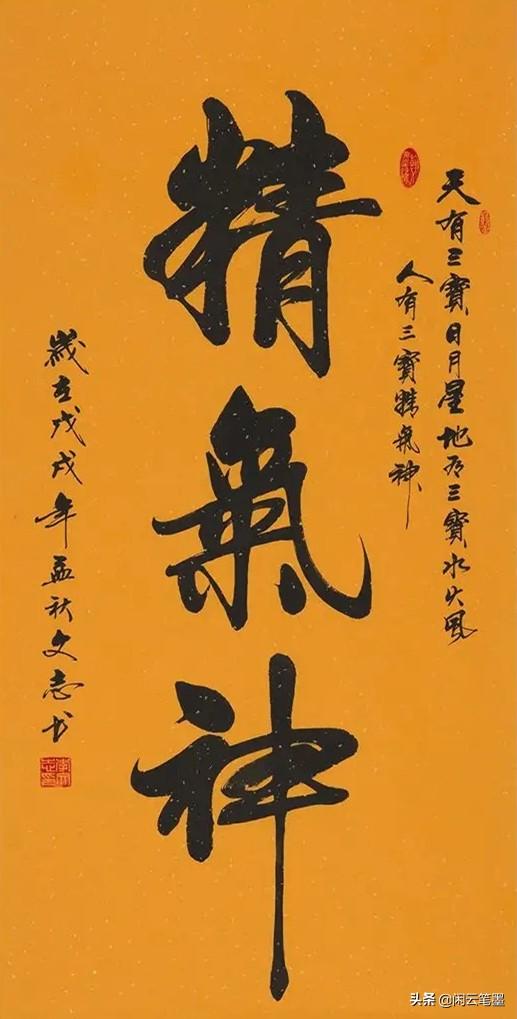 天有三寶日月星地有三寶水火風
人有三寶精氣神
精氣神
歲在戊戌年孟秋文志书
头条 @闲云笔墨